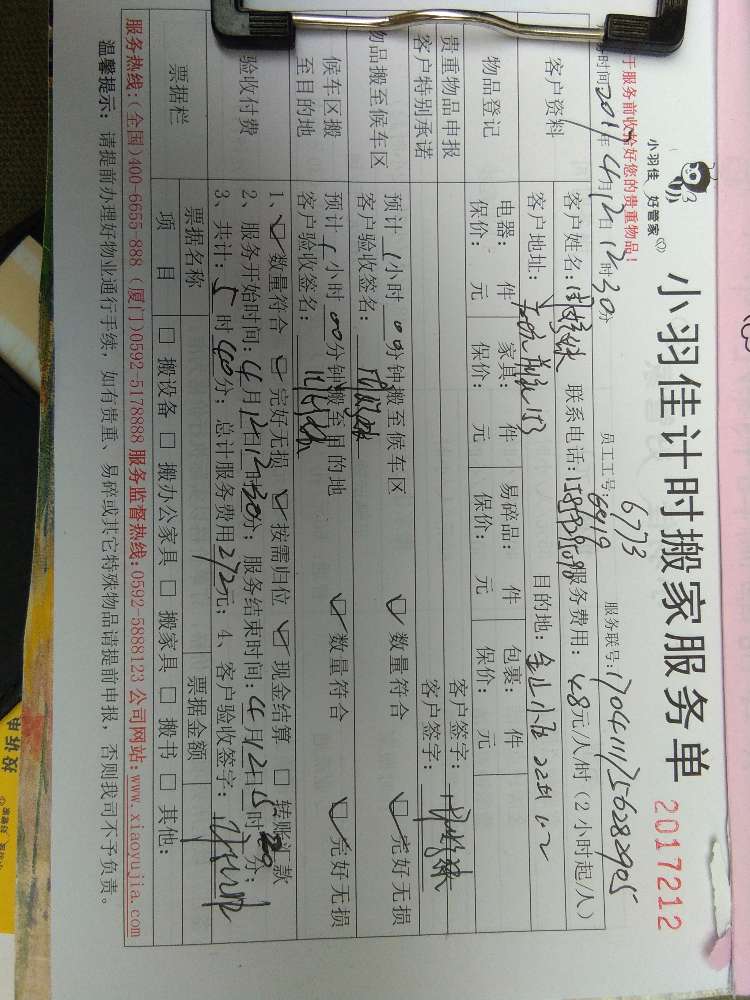 请于服务前收拾好您的贵重物品!
小羽佳 好管家
小羽佳计时搬家服务单 2017212
时间2017年4月12日12时30分 员工工号: 6773 6419 服务联号:1704111756282905
客户资料 客户姓名: 联系电话: 服务费用:48元/人/时(2小时起/人)
客户地址: 目的地:金山小区22 102
物品登记 电器: 件 家具: 件 易碎品: 件 包裹: 件
保价: 元 保价: 元 保价: 元 保价: 元
贵重物品申报 客户签字:
客户特别承诺 客户签字:
物品搬至候车区 预计 1小时 00分钟搬至候车区 ☑ 数量符合 ☑ 完好无损
客户验收签名:
候车区搬至目的地 预计 1小时 00分钟搬至目的地 ☑ 数量符合 ☑ 完好无损
客户验收签名:
验收付费 1、☑ 数量符合 ☑ 完好无损 ☑ 按需归位 ☑ 现金结算 □ 转账汇款
2、服务开始时间:4月12日12时30分; 服务结束时间:4月12日15时20分;
3、共计:5时40分; 总计服务费用272元; 4、客户验收签字:
票据栏 票据名称 票据金额
项 目 □ 搬设备 □ 搬办公家具 □ 搬家具 □ 搬书 □ 其他:
服务热线:(全国)400-6655-888 (厦门)0592-5178888 服务监督热线:0592-5888123 公司网站:www.xiaoyujia.com
温馨提示: 请提前办理好物业通行手续,如有贵重、易碎或其它特殊物品请提前申报,否则我司不予负责。
投诉电